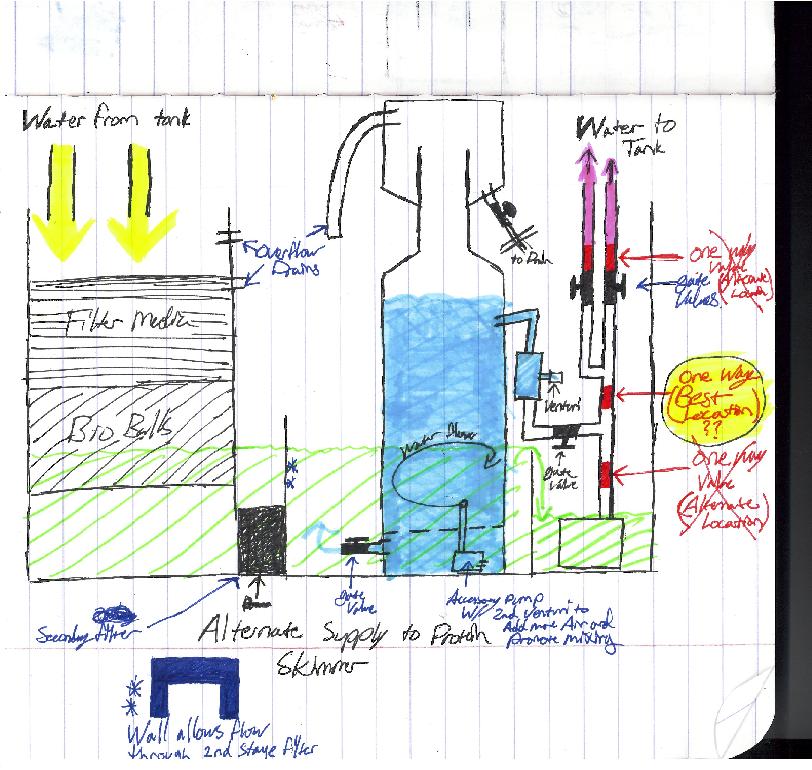 Water from tank
Water to
Tank
Overflow
Drains
to Drain
one way
Valve
(Alternate
Location)
gate
Valves
Filter Media
Bio Balls
One Way
(Best
Location)
??
Venturi
Water Flow
gate
Valve
One Way
Valve
(Alternate
Location)
**
gate
Valve
Secondary filter
Accessory Pump
W/ 2nd Venturi to
Add more Air and
promote mixing
Alternate Supply to Protein
Skimmer
**
Wall allows flow
through 2nd stage filter